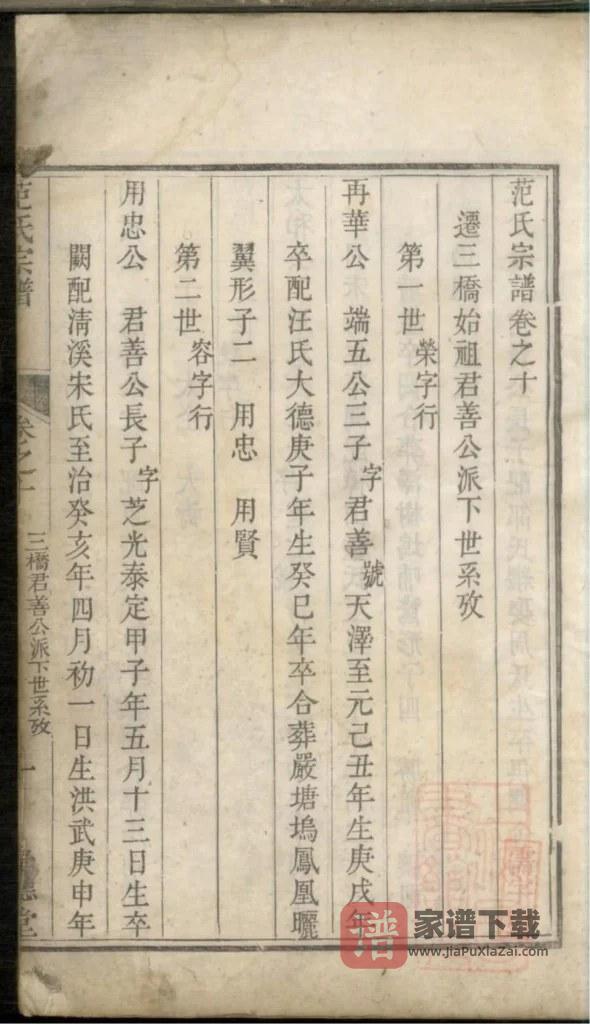 范氏宗譜卷之十
遷三橋始祖君善公派下世系攷
第一世 榮字行
再華公 端五公三子字君善號天澤至元己丑年生庚戌年
卒配汪氏大德庚子年生癸巳年卒合葬嚴塘塢鳳凰曬
翼形子二 用忠 用賢
第二世 容字行
用忠公 君善公長子字芝光泰定甲子年五月十三日生卒
闕配清溪宋氏至治癸亥年四月初一日生洪武庚申年
范氏宗譜 卷之十 三橋君善公派下世系攷 一 堂
譜 家谱下载
www.jiaPuXiaZai.com